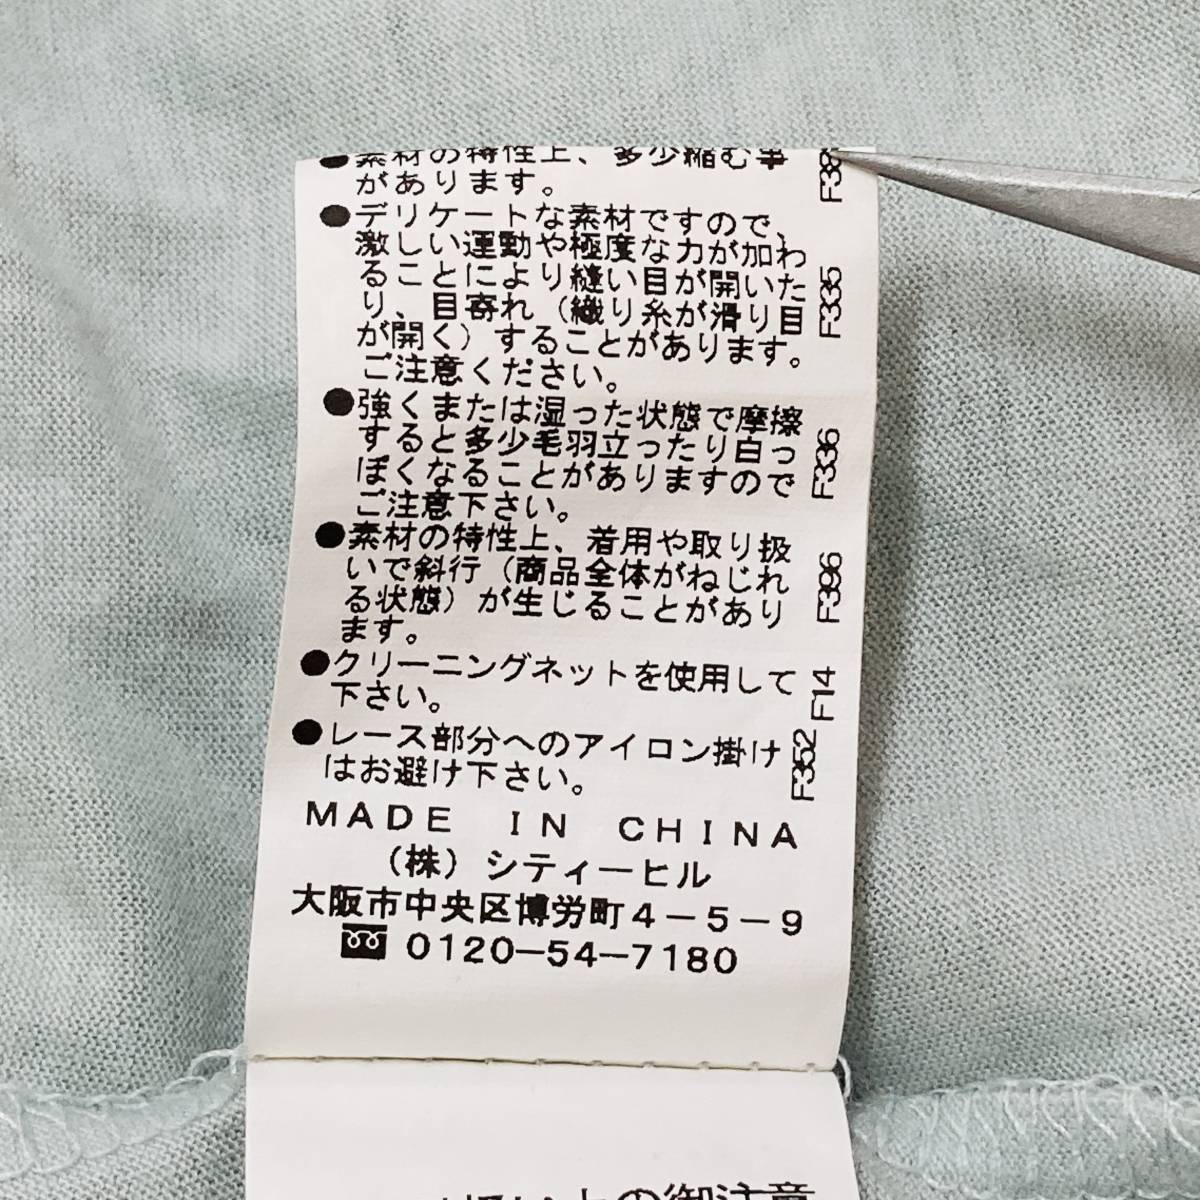 ●素材の特性上、多少縮む事
があります。
●デリケートな素材ですので、
激しい運動や極度な力が加わ
ることにより縫い目が開いた
り、目寄れ（織り糸が滑り目
が開く）することがあります。
ご注意ください。
F335
●強くまたは湿った状態で摩擦
すると多少毛羽立ったり白っ
ぽくなることがありますので
ご注意下さい。
F336
●素材の特性上、着用や取り扱
いで斜行（商品全体がねじれ
る状態）が生じることがあり
ます。
F396
●クリーニングネットを使用して
下さい。
F14
●レース部分へのアイロン掛け
はお避け下さい。
F352
MADE IN CHINA
（株）シティーヒル
大阪市中央区博労町4－5－9
0120－54－7180
上の御注意